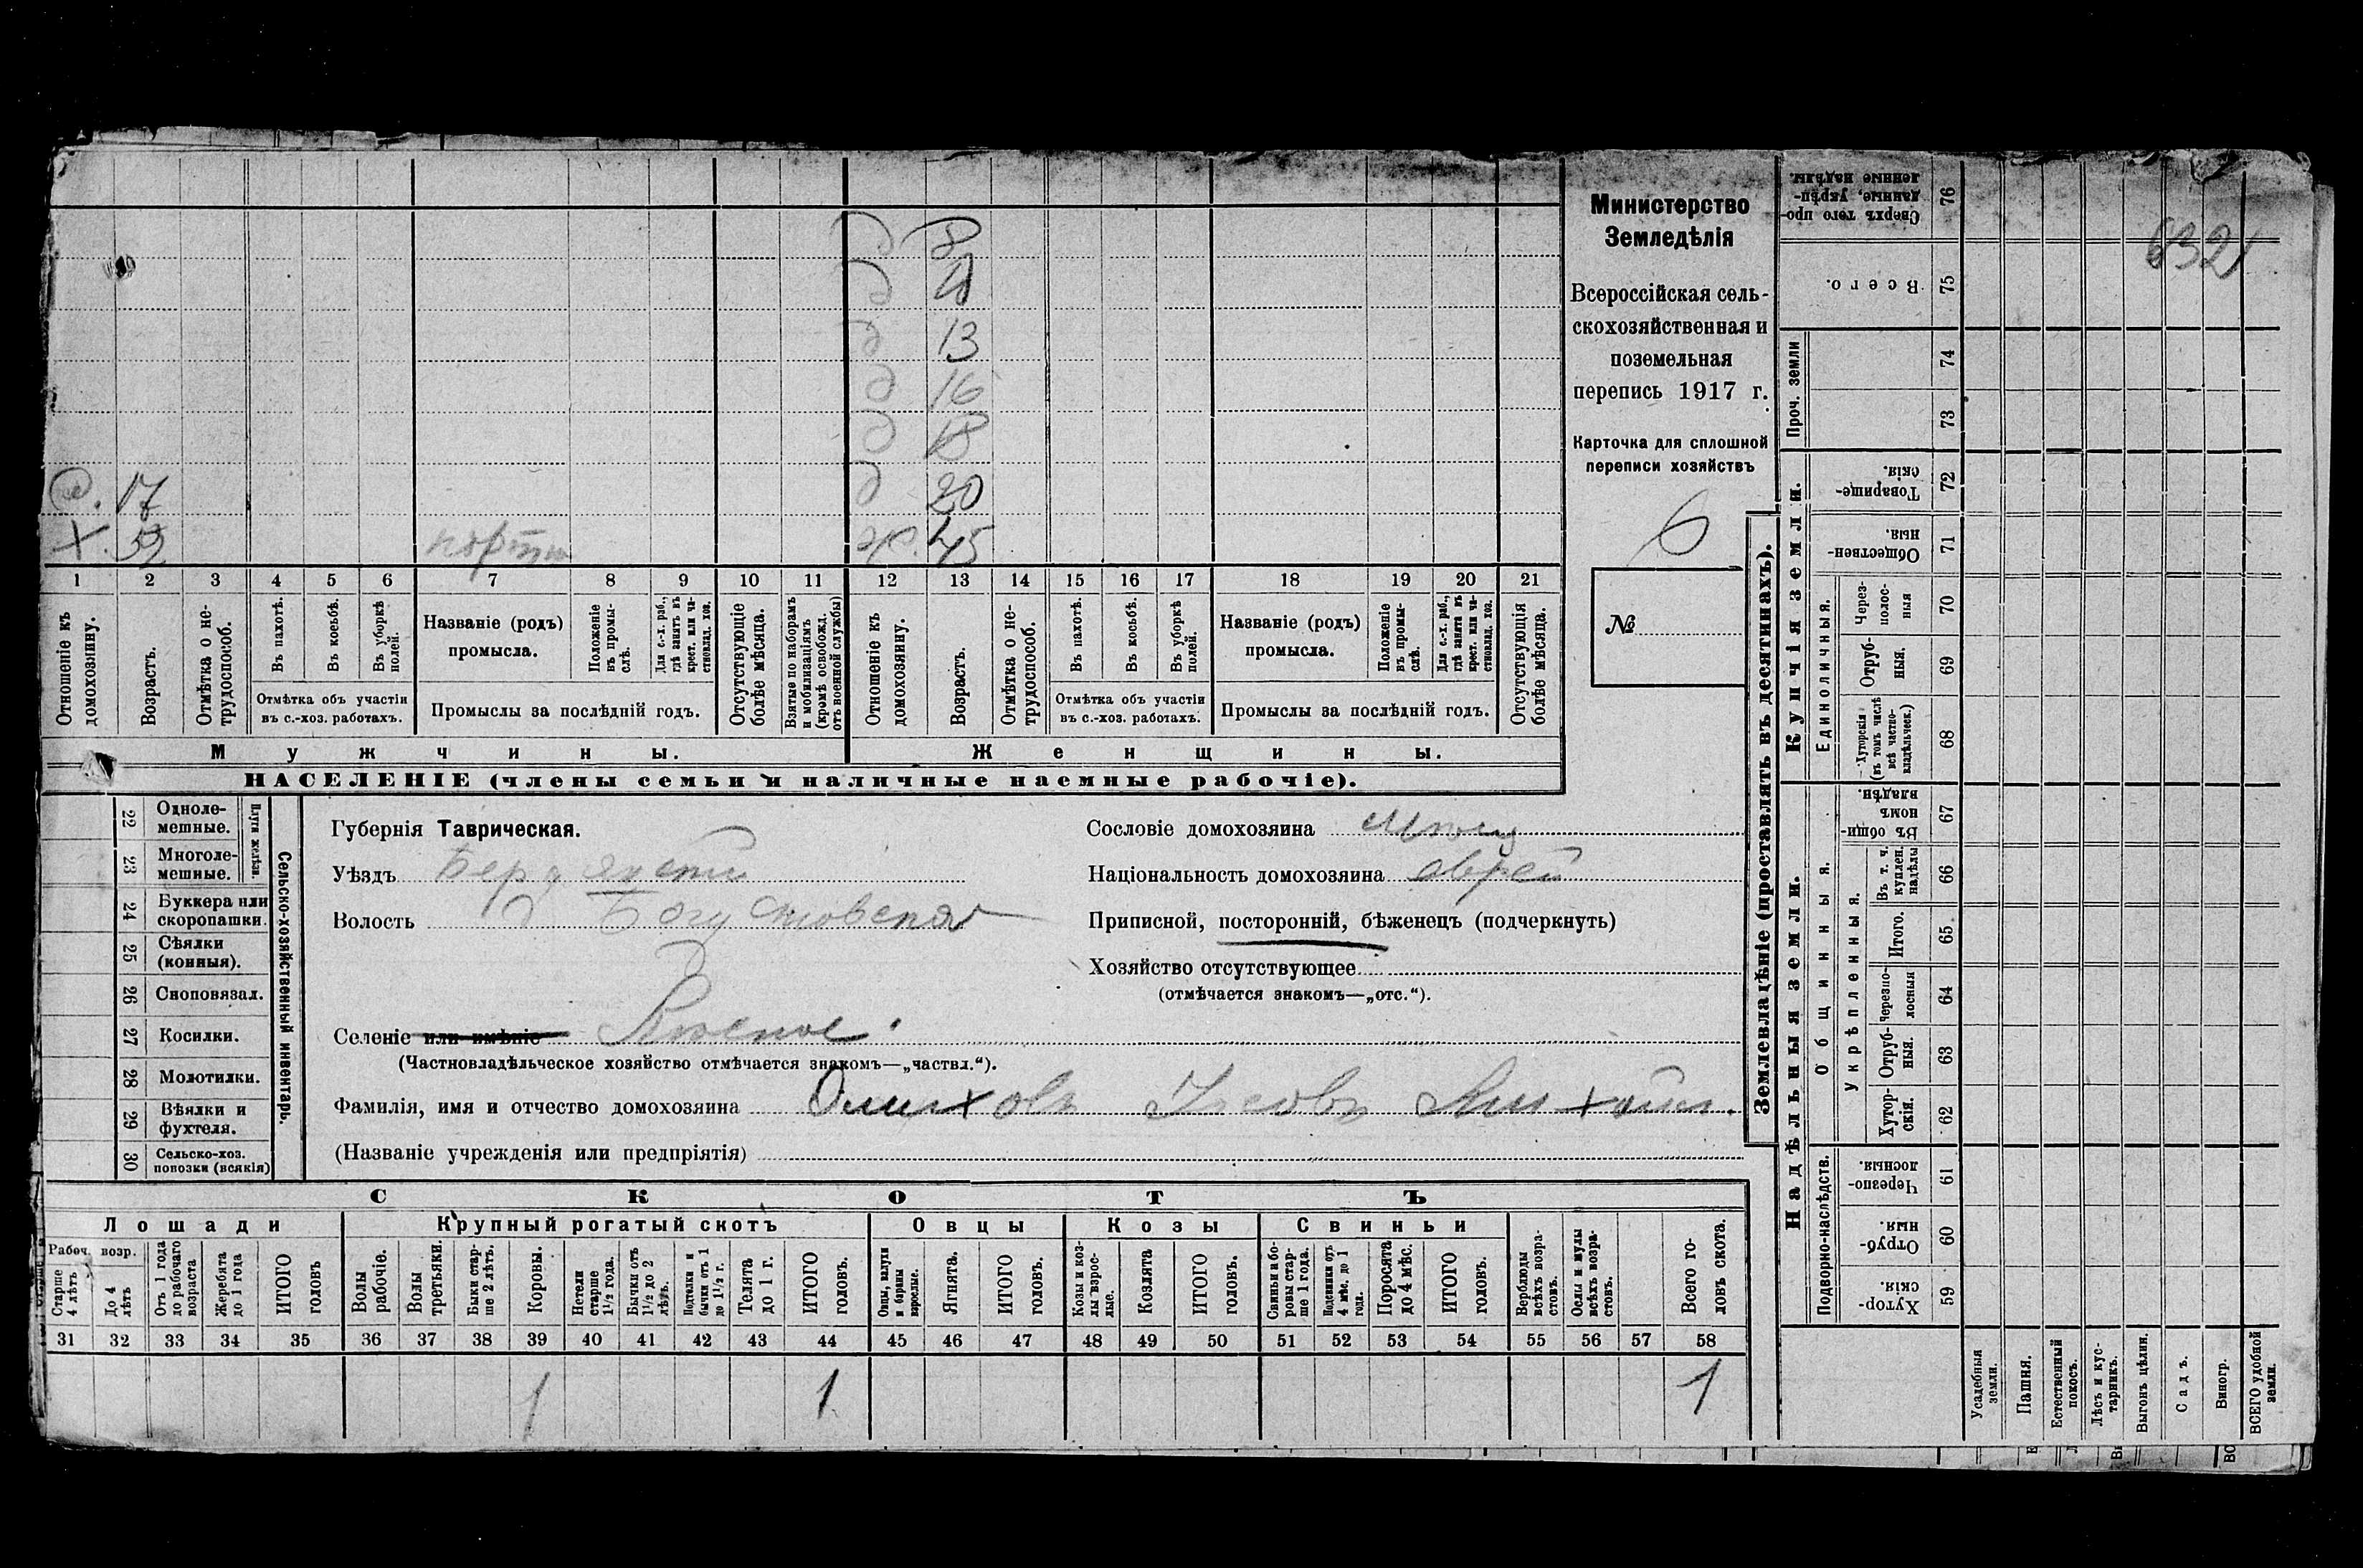 д 8
д 11
д 13
д 16
д 18
д 20
17
Х. 52 ж. 45
1 2 3 4 5 6 7 8 9 10 11 12 13 14 15 16 17 18 19 20 21
Отношеніе къ домохозяину.
Возрастъ.
Отмѣтка о не-трудоспособ.
Въ пахотѣ.
Въ косьбѣ.
Въ уборкѣ полей.
Отмѣтка объ участіи
въ с.-хоз. работахъ.
Названіе (родъ)
промысла.
Положеніе въ промы-слѣ.
Для с.-х. раб., гдѣ занятъ въ крест. или ча-стновлад. хоз.
Промыслы за послѣдній годъ.
Отсутствующіе болѣе мѣсяца.
Взятые по наборамъ и мобилизаціямъ (кромѣ освобожд. отъ военной службы)
Отношеніе къ домохозяину.
Возрастъ.
Отмѣтка о не-трудоспособ.
Въ пахотѣ.
Въ косьбѣ.
Въ уборкѣ полей.
Отмѣтка объ участіи
въ с.-хоз. работахъ.
Названіе (родъ)
промысла.
Положеніе въ промы-слѣ.
Для с.-х. раб., гдѣ занята въ крест. или ча-стновлад. хоз.
Промыслы за послѣдній годъ.
Отсутствующія болѣе мѣсяца.
Мужчины. Женщины.
НАСЕЛЕНІЕ (члены семьи и наличные наемные рабочіе).
Министерство
Земледѣлія
Всероссійская сель-
скохозяйственная и
поземельная
перепись 1917 г.
Карточка для сплошной
переписи хозяйствъ
6
№
22 Одноле-мешные.
23 Многоле-мешные.
Плуги желѣзн.
24 Буккера или скоропашки.
25 Сѣялки (конныя).
26 Сноповязал.
27 Косилки.
28 Молотилки.
29 Вѣялки и фухтеля.
30 Сельско-хоз. повозки (всякія)
Сельско-хозяйственный инвентарь.
Губернія Таврическая.
Уѣздъ Бердянскій
Волость
Селеніе или имѣніе
(Частновладѣльческое хозяйство отмѣчается знакомъ—„частвл.“).
Фамилія, имя и отчество домохозяина
(Названіе учрежденія или предпріятія)
Сословіе домохозяина
Національность домохозяина еврей
Приписной, посторонній, бѣженецъ (подчеркнуть)
Хозяйство отсутствующее
(отмѣчается знакомъ—„отс.“).
СКОТЪ
Лошади Крупный рогатый скотъ Овцы Козы Свиньи
Рабоч. возр.
Старше 4 лѣтъ
До 4 лѣтъ
Отъ 1 года до рабочаго возраста
Жеребята до 1 года
ИТОГО головъ
Волы рабочіе.
Волы третьяки.
Быки стар-ше 2 лѣтъ.
Коровы.
Нетели старше 1½ года.
Бычки отъ 1½ до 2 лѣтъ.
Подтелки и бычки отъ 1 до 1½ г.
Телята до 1 г.
ИТОГО головъ.
Овцы, валухи и бараны взрослые.
Ягнята.
ИТОГО головъ.
Козы и коз-лы взрос-лые.
Козлята
ИТОГО головъ.
Свиньи и бо-ровы стар-ше 1 года.
Подсвинки отъ 4 мѣс. до 1 года.
Поросята до 4 мѣс.
ИТОГО головъ.
Верблюды всѣхъ возра-стовъ.
Ослы и мулы всѣхъ возра-стовъ.
Всего го-ловъ скота.
31 32 33 34 35 36 37 38 39 40 41 42 43 44 45 46 47 48 49 50 51 52 53 54 55 56 57 58
1 1 1
Землевладѣніе (проставлять въ десятинахъ).
Надѣльныя земли.
Купчія земли.
Подворно-наслѣдств.
Общинныя.
Укрѣпленныя.
Единоличныя.
Проч. земли
Сверхъ того про-данные, укрѣп-ленные надѣлы. 76
Всего. 75
74
73
Товарище-скія. 72
Обществен-ныя. 71
Через-полос-ныя 70
Отруб-ныя. 69
Хуторскія (въ томъ числѣ всѣ частно-владѣльческ.) 68
Въ общи-номъ владѣн. 67
Въ т. ч. куплен. надѣлы 66
Итого. 65
Черезпо-лосныя 64
Отруб-ныя. 63
Хутор-скія. 62
Черезпо-лосныя. 61
Отруб-ныя. 60
Хутор-скія. 59
Усадебныя земли.
Пашня.
Естественный покосъ.
Лѣсъ и кус-тарникъ.
Выгонъ цѣлин.
Садъ.
Виногр.
ВСЕГО удобной земли.